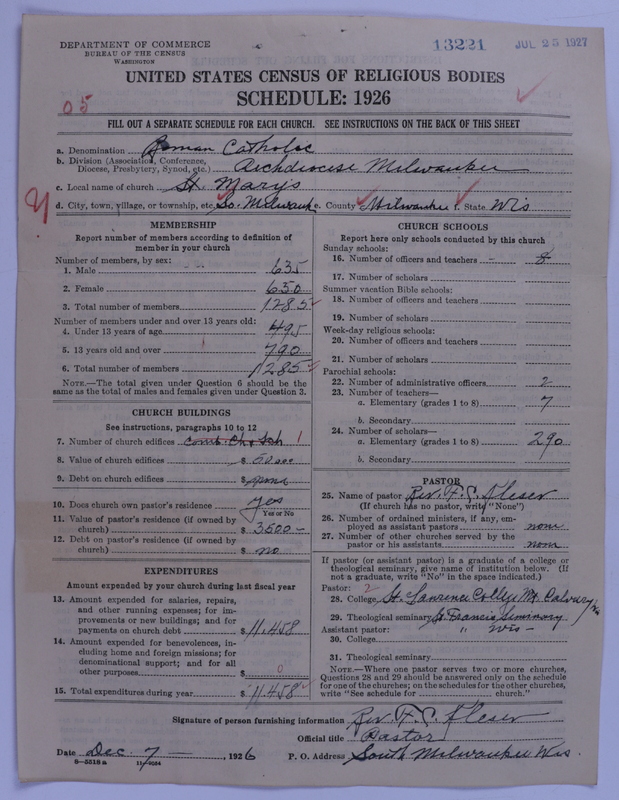 DEPARTMENT OF COMMERCE
BUREAU OF THE CENSUS
WASHINGTON
13221 JUL 25 1927
UNITED STATES CENSUS OF RELIGIOUS BODIES
SCHEDULE: 1926
05
FILL OUT A SEPARATE SCHEDULE FOR EACH CHURCH. SEE INSTRUCTIONS ON THE BACK OF THIS SHEET
a. Denomination Roman Catholic
b. Division (Association, Conference, Diocese, Presbytery, Synod, etc.) Archdiocese Milwaukee
c. Local name of church St. Mary's
d. City, town, village, or township, etc. So. Milwauk e. County Milwaukee f. State Wis
MEMBERSHIP
Report number of members according to definition of
member in your church
Number of members, by sex:
1. Male 635
2. Female 650
3. Total number of members 1285
Number of members under and over 13 years old:
4. Under 13 years of age 495
5. 13 years old and over 790
6. Total number of members 1285
NOTE.—The total given under Question 6 should be the
same as the total of males and females given under Question 3.
CHURCH BUILDINGS
See instructions, paragraphs 10 to 12
7. Number of church edifices Comb. Ch & Sch 1
8. Value of church edifices $ 50000
9. Debt on church edifices $ none
10. Does church own pastor's residence yes
Yes or No
11. Value of pastor's residence (if owned by
church) $ 3500-
12. Debt on pastor's residence (if owned by
church) $ no
EXPENDITURES
Amount expended by your church during last fiscal year
13. Amount expended for salaries, repairs,
and other running expenses; for im-
provements or new buildings; and for
payments on church debt $ 11,458
14. Amount expended for benevolences, in-
cluding home and foreign missions; for
denominational support; and for all
other purposes $ 0
15. Total expenditures during year $ 11,458
CHURCH SCHOOLS
Report here only schools conducted by this church
Sunday schools:
16. Number of officers and teachers 8
17. Number of scholars
Summer vacation Bible schools:
18. Number of officers and teachers
19. Number of scholars
Week-day religious schools:
20. Number of officers and teachers
21. Number of scholars
Parochial schools:
22. Number of administrative officers 2
23. Number of teachers—
a. Elementary (grades 1 to 8) 7
b. Secondary
24. Number of scholars—
a. Elementary (grades 1 to 8) 290
b. Secondary
PASTOR
25. Name of pastor Rev. F. C. Kleser
(If church has no pastor, write "None")
26. Number of ordained ministers, if any, em-
ployed as assistant pastors none
27. Number of other churches served by the
pastor or his assistants none
If pastor (or assistant pastor) is a graduate of a college or
theological seminary, give name of institution below. (If
not a graduate, write "No" in the space indicated.)
Pastor: 2
28. College St. Lawrence College Mt. Calvary
29. Theological seminary St Francis Seminary
Assistant pastor: " Wis-
30. College
31. Theological seminary
NOTE.—Where one pastor serves two or more churches,
Questions 28 and 29 should be answered only on the schedule
for one of the churches; on the schedules for the other churches,
write "See schedule for church."
Signature of person furnishing information Rev. F. C. Kleser
Official title Pastor
Date Dec 7 — , 1926 P. O. Address South Milwaukee Wis.
8—5518 a 11—9084